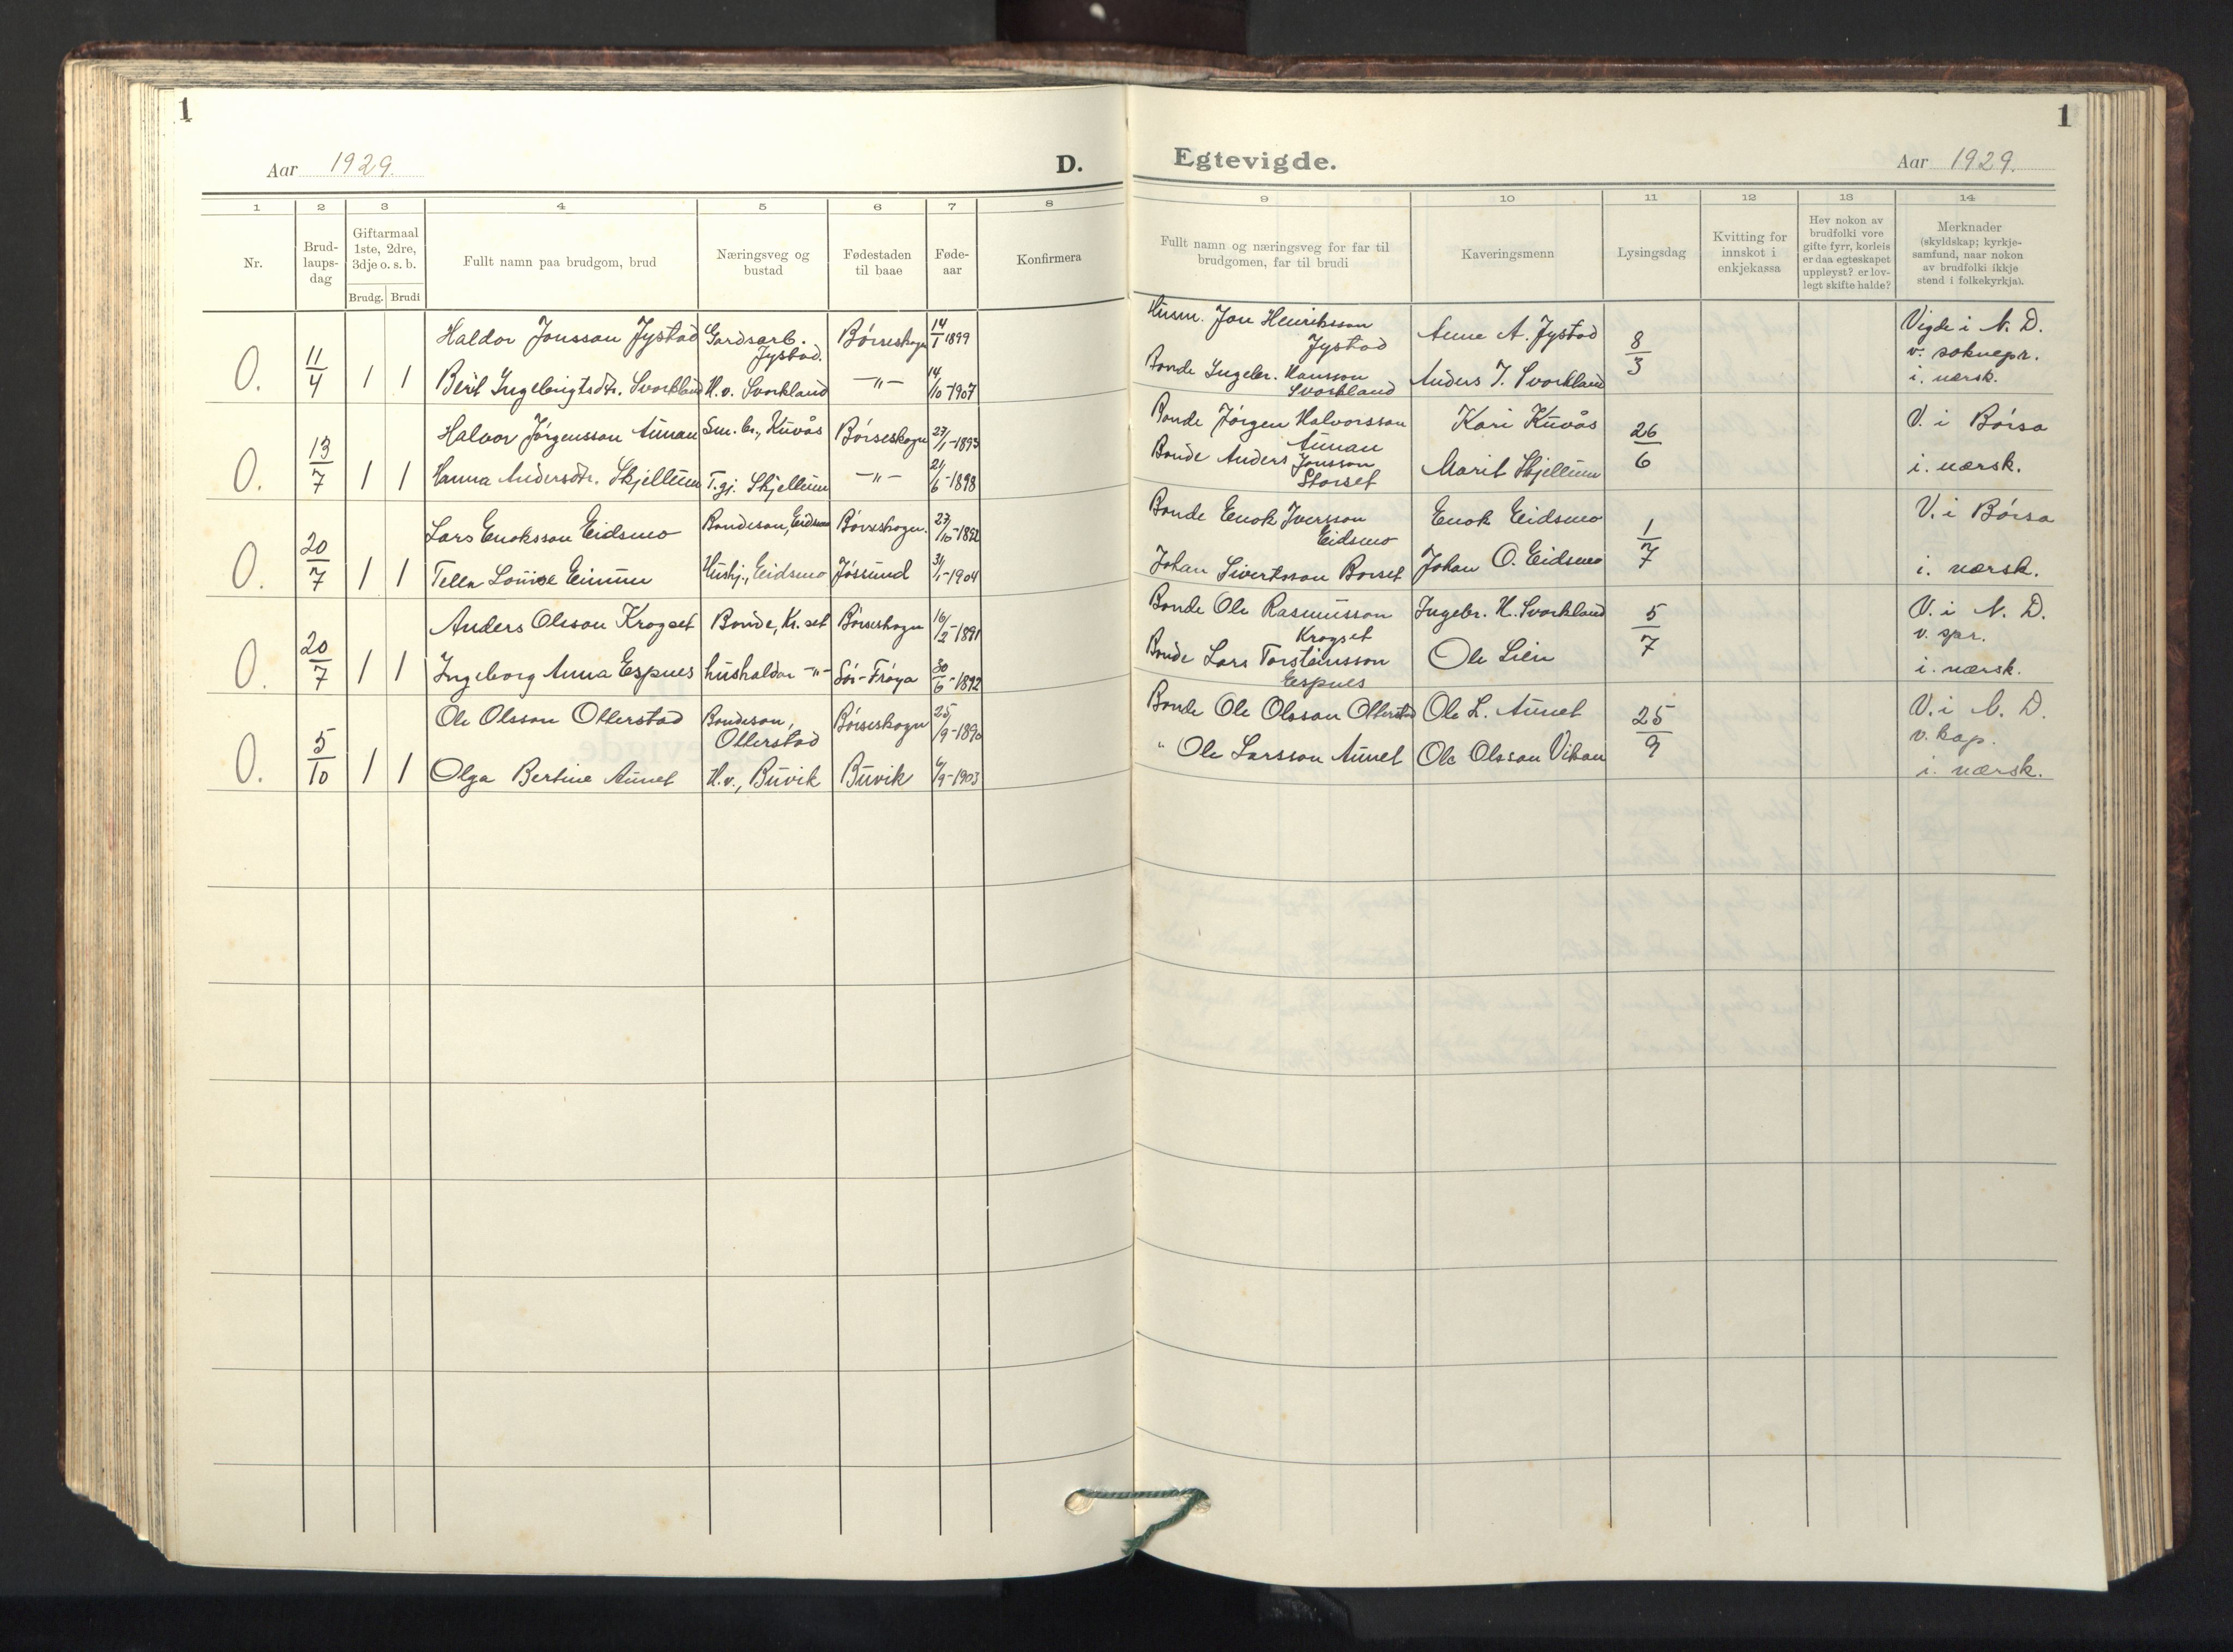 1
Aar 1929. D.
1 2 3 4 5 6 7 8
Nr.
Brud-
laups-
dag
Giftarmaal
1ste, 2dre,
3dje o. s. b.
Brudg. Brudi
Fullt namn paa brudgom, brud
Næringsveg og
bustad
Fødestaden
til baae
Føde-
aar
Konfirmera
Haldor Jonsson Jystad Gardsarb. Jystad. Børseskogn 14/1 1899
O. 11/4 1 1 Berit Ingebrigtsdtr. Svorkland H.v. Svorkland —"— 14/10-1907
Halvor Jørgensson Aunan Sm. br., Kuvås Børseskogn 27/1-1893
O. 13/7 1 1 Hanna Andersdtr. Skjellum T.gj. Skjellum —"— 21/6-1898
Lars Enoksson Eidsmo Bondeson, Eidsmo Børseskogn.
O. 20/7 1 1 Louise Hushj., Eidsmo Jøssund 31/1-1904
Anders Olsson Krogset Bonde, Kr.set Børseskogn 16/2-1891
O. 20/7 1 1 Ingeborg Anna Espnes hushaldar —"— Sør-Frøya 30/6-1892
Ole Olsson Ollerstad Bondeson, Ollerstad Børseskogn 25/9-1890
O. 5/10 1 1 Olga Bertine Aunet H.v., Buvik Buvik /9-1903
1
Egtevigde. Aar 1929.
9 10 11 12 13 14
Fullt namn og næringsveg for far til
brudgomen, far til brudi
Kaveringsmenn
Lysingsdag
Kvitting for
innskot i
enkjekassa
Hev nokon av
brudfolki vore
gifte fyrr, korleis
er daa egteskapet
uppløyst? er lov-
legt skifte halde?
Merknader
(skyldskap; kyrkje-
samfund, naar nokon
av brudfolki ikkje
stend i folkekyrkja).
Husm. Jon Henriksson
Jystad
Anne A. Jystad
8/3
Vigde i N. D.
v. soknepr.
i. nærsk.
Bonde Ingebr. Hansson
Svorkland
Anders I. Svorkland
Bonde Jørgen Halvorsson
Aunan
Kari Kuvås
26/6
V. i Børsa
i. nærsk.
Bonde Anders Jonsson
Storset
Marit Skjellum
Bonde Enok Iversson
Eidsmo
Enok Eidsmo
1/7
V. i Børsa
i. nærsk.
Johan Sivertsson Borset
Johan O. Eidsmo
Bonde Ole Rasmusson
Krogset
Ingebr. H. Svorkland
5/7
V. i N. D.
v. spr.
i. nærsk.
Bonde Lars Torsteinsson
Espnes
Ole Lien
Bonde Ole Olsson Ollerstad
Ole L. Aunet
25/9
V. i N. D.
v. kap.
i. nærsk.
" Ole Larsson Aunet
Ole Olsson Vikan